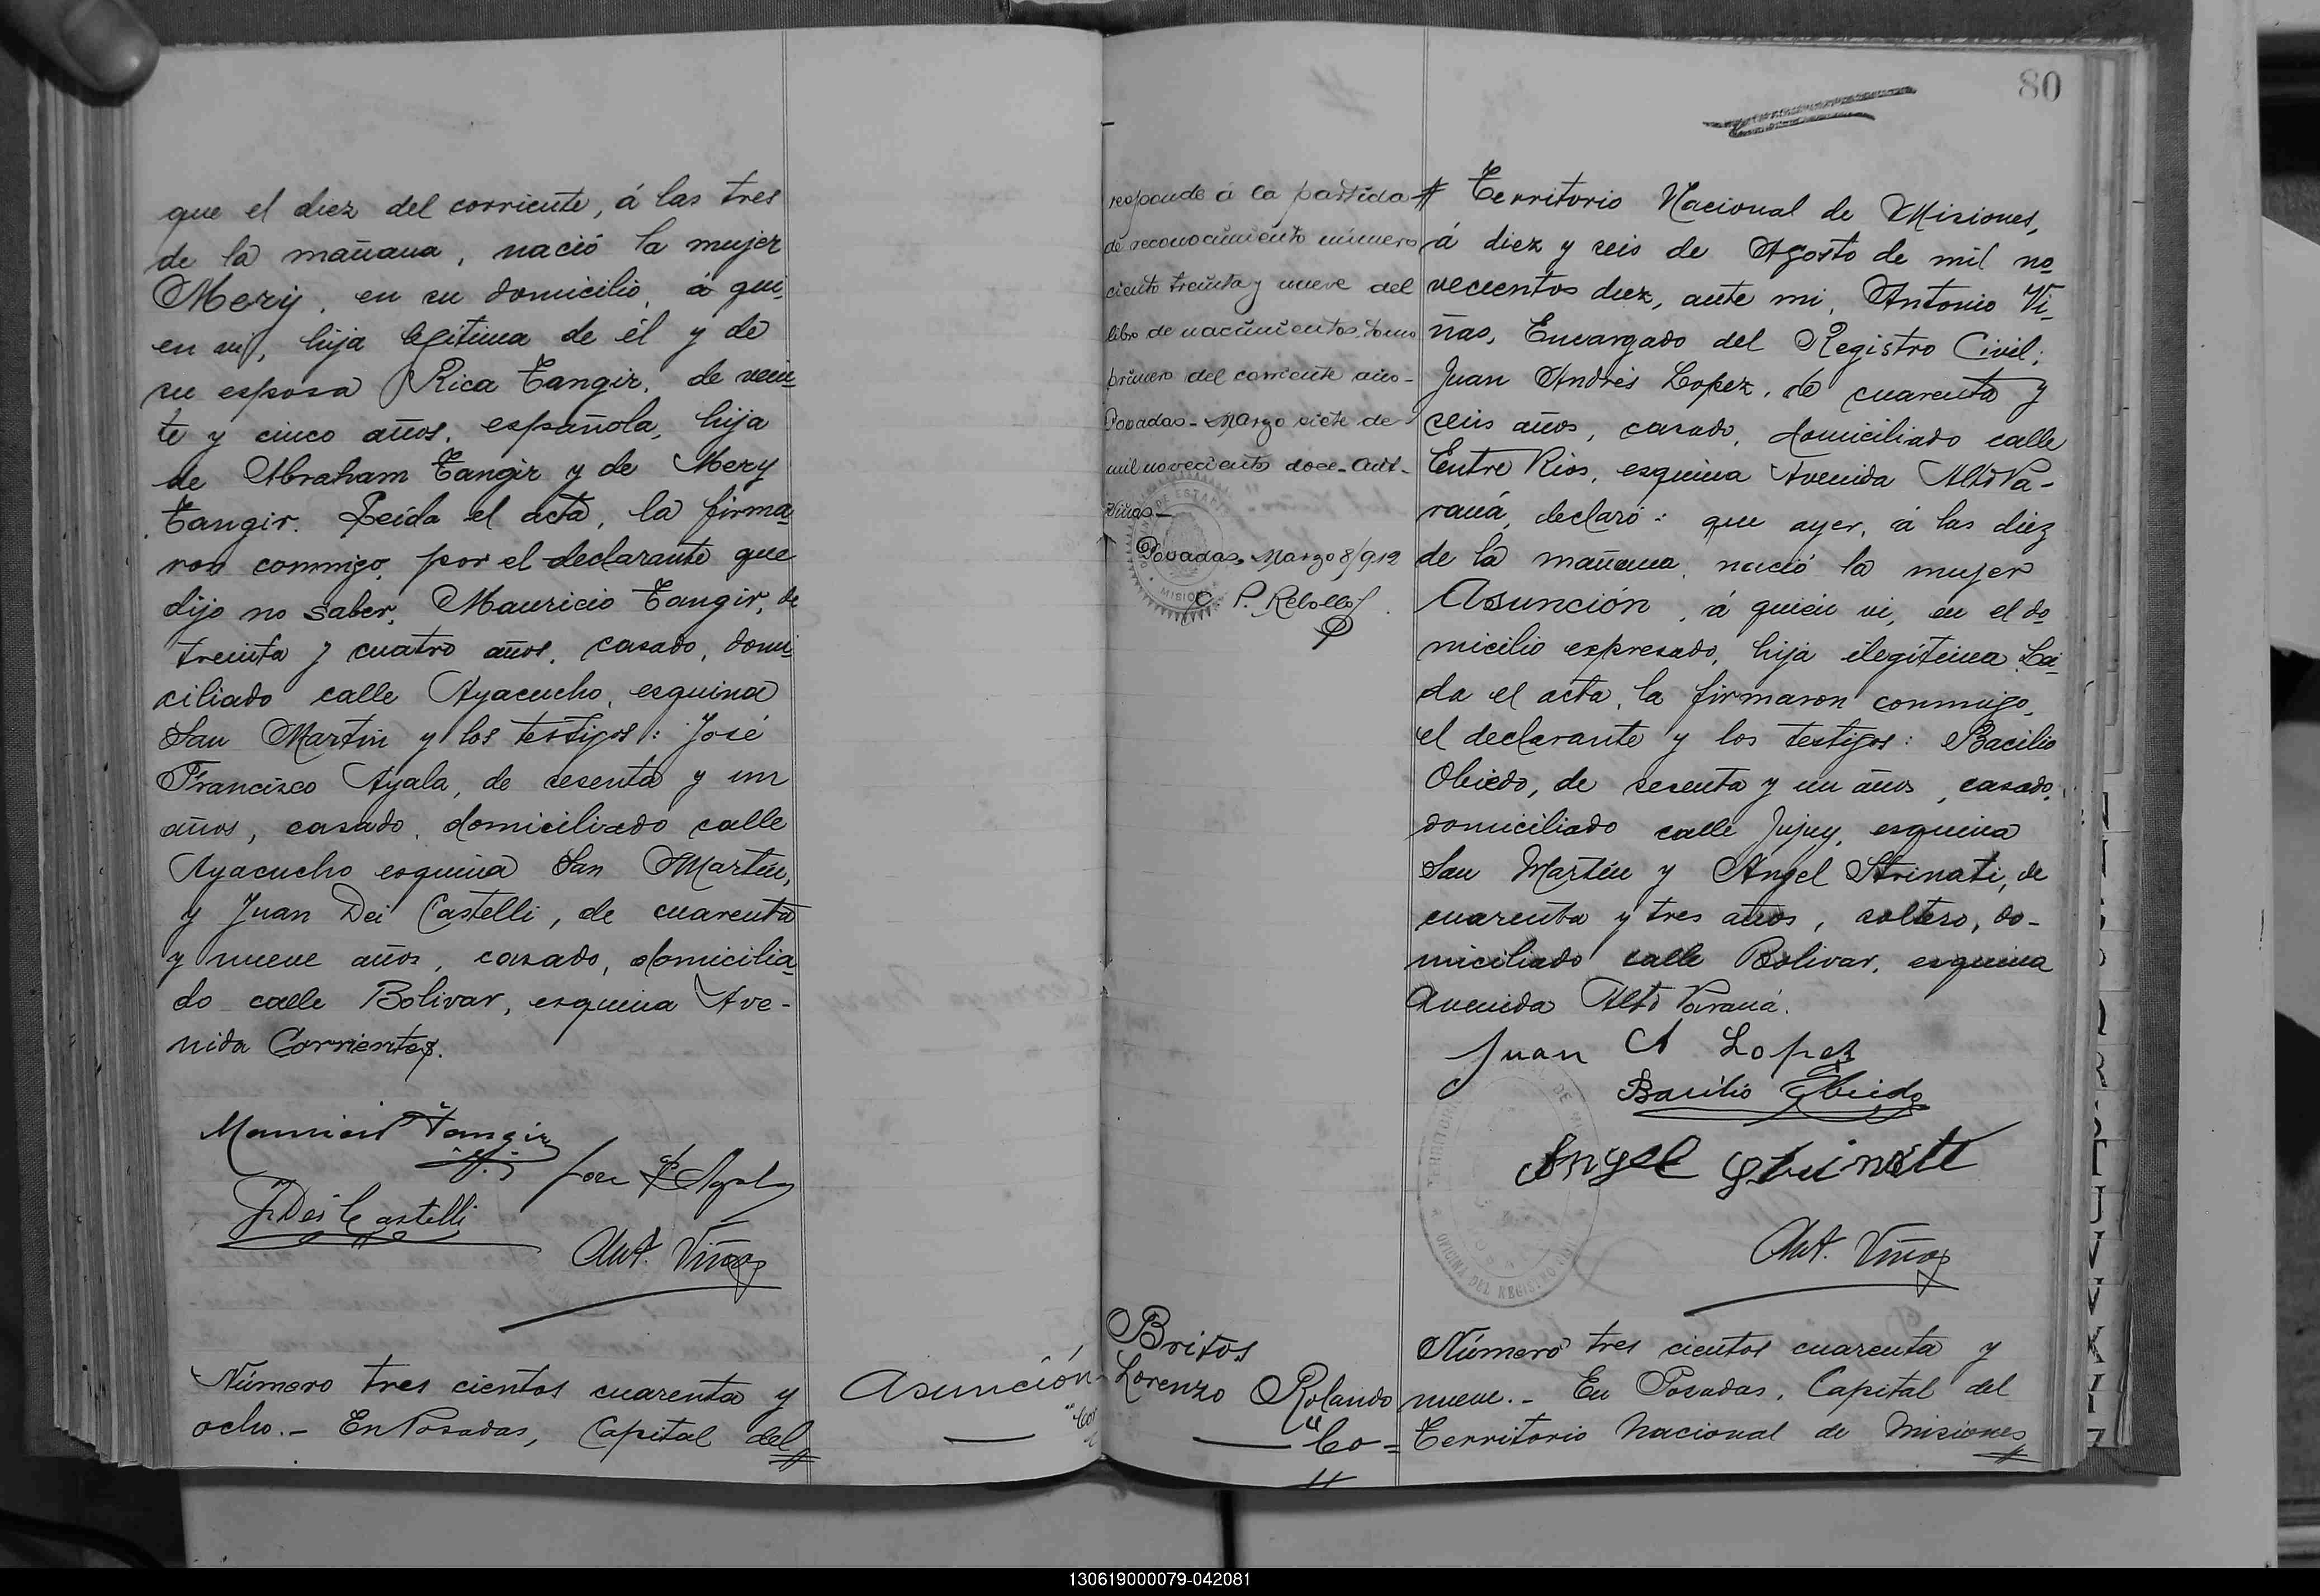 que el diez del corriente, á las tres
de la mañana, nació la mujer
Mery, en su domicilio, á qui_
en vi, hija legítima de él y de
su esposa Rica Tangir, de vein_
te y cinco años, española, hija
de Abraham Tangir y de Mery
Tangir. Leída el acta, la firma_
ron conmigo, por el declarante que
dijo no saber, Mauricio Tangir, de
treinta y cuatro años, casado, domi_
ciliado calle Ayacucho, esquina
San Martin y los testigos: José
Francisco Ayala, de sesenta y un
años, casado, domiciliado calle
Ayacucho esquina San Martín,
y Juan Dei Castelli, de cuarenta
y nueve años, casado, domicilia_
do calle Bolivar, esquina Ave-
nida Corrientes.
Mauricio Tangir
Jose F Ayala
J. Dei Castelli
Ant. Viñas
Número tres cientos cuarenta y
ocho.- En Posadas, Capital del
Asunción
80
responde á la partida
de reconocimiento número
ciento treinta y nueve del
libro de nacimientos, tomo
primero del corriente año-
Posadas- Marzo siete de
mil novecientos doce- Ant-
Viñas-
Posadas, Marzo 8/912
C. P. Rebollo
Territorio Nacional de Misiones,
á diez y seis de Agosto de mil no_
vecientos diez, ante mi, Antonio Vi_
ñas, Encargado del Registro Civil;
Juan Andrés Lopez, de cuarenta y
seis años, casado, domiciliado calle
Entre Rios, esquina Avenida Alto Pa-
raná, declaró: que ayer, á las diez
de la mañana, nació la mujer
Asunción, á quien vi, en el do_
micilio expresado, hija ilegítima. Leí_
da el acta, la firmaron conmigo,
el declarante y los testigos: Bacilio
Obiedo, de sesenta y un años, casado,
domiciliado calle Jujuy, esquina
San Martín y Angel Strinati, de
cuarenta y tres años, soltero, do-
miciliado calle Bolivar, esquina
Avenida Alto Paraná.
Juan A Lopez
Basilio Obiedo
Angel Strinati
Ant. Viñas
Britos
Lorenzo Rolando
"Co=
Número tres cientos cuarenta y
nueve.- En Posadas, Capital del
Territorio Nacional de Misiones
130619000079-042081